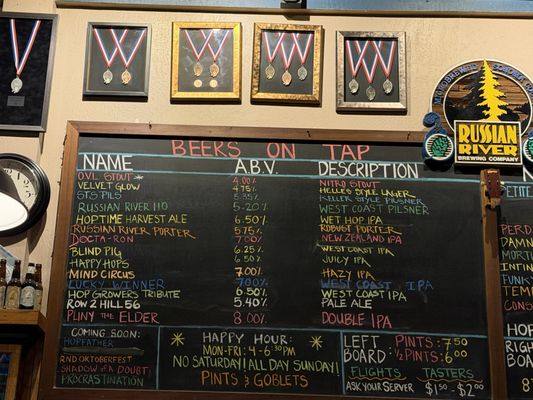 BEERS ON TAP
NAME A.B.V. DESCRIPTION
OVL STOUT 4.00% NITRO STOUT
VELVET GLOW 4.75% HELLES STYLE LAGER
STS PILS 5.35% KELLER STYLE PILSNER
RUSSIAN RIVER 110 5.20% WEST COAST PILSNER
HOPTIME HARVEST ALE 6.50% WET HOP IPA
RUSSIAN RIVER PORTER 5.75% ROBUST PORTER
DOCTA-RON 7.00% NEW ZEALAND IPA
BLIND PIG 6.25% WEST COAST IPA
HAPPY HOPS 6.50% JUICY IPA
MIND CIRCUS 7.00% HAZY IPA
LUCKY WINNER 7.00% WEST COAST IPA
HOP GROWERS TRIBUTE 6.50% WEST COAST IPA
ROW 2 HILL 56 5.40% PALE ALE
PLINY THE ELDER 8.00% DOUBLE IPA
COMING SOON:
HOPFATHER
2ND OKTOBERFEST
SHADOW OF A DOUBT
PROCRASTINATION
HAPPY HOUR:
MON-FRI: 4-6:30PM
NO SATURDAY! ALL DAY SUNDAY!
PINTS & GOBLETS
LEFT BOARD: PINTS: 7.50
1/2 PINTS: 6.00
FLIGHTS TASTERS
ASK YOUR SERVER $1.50-$2.00
RUSSIAN
RIVER
BREWING COMPANY